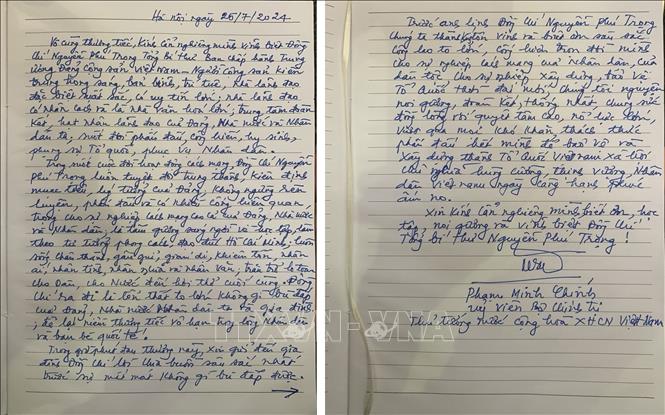 Hà Nội ngày 25/7/2024
Vô cùng thương tiếc, kính cẩn nghiêng mình vĩnh biệt Đồng
Chí Nguyễn Phú Trọng Tổng Bí thư Ban chấp hành Trung
ương Đảng Cộng sản Việt Nam. Người Cộng sản kiên
trung, trong sáng, bản lĩnh, trí tuệ, nhà lãnh đạo
đặc biệt xuất sắc, có uy tín lớn; nhà lãnh đạo
có nhân cách và là nhà văn hóa lớn; trung tâm đoàn
kết, hạt nhân lãnh đạo của Đảng, Nhà nước và Nhân
dân ta; một đời phấn đấu, cống hiến, hy sinh,
phụng sự Tổ quốc, phục vụ Nhân dân.
Trong suốt cuộc đời hoạt động cách mạng, Đồng Chí Nguyễn
Phú Trọng luôn tuyệt đối trung thành, kiên định
mục tiêu, lý tưởng của Đảng, không ngừng rèn
luyện, phấn đấu và có nhiều cống hiến quan
trọng cho sự nghiệp cách mạng cao cả của Đảng, Nhà nước
và Nhân dân; là tấm gương sáng ngời về học tập, làm
theo tư tưởng, phong cách, đạo đức Hồ Chí Minh; luôn
sống chân thành, gần gũi, giản dị, khiêm tốn, nhân
ái, nhân tình, nhân nghĩa và nhân văn; trăn trở lo toan
cho Dân, cho Nước đến hơi thở cuối cùng. Đồng
Chí ra đi là tổn thất to lớn không gì bù đắp
của Đảng, Nhà nước, Nhân dân ta và gia đình;
để lại niềm thương tiếc vô hạn trong lòng Nhân dân
và bạn bè quốc tế.
Trong giờ phút đau thương này, xin gửi đến gia
đình Đồng Chí lời chia buồn sâu sắc nhất
trước sự mất mát không gì bù đắp được.
Trước anh linh Đồng Chí Nguyễn Phú Trọng
chúng ta thành kính tôn vinh và biết ơn sâu sắc
công lao to lớn, cống hiến trọn đời mình
cho sự nghiệp cách mạng của Nhân dân, của
dân tộc, cho sự nghiệp xây dựng, bảo vệ
Tổ quốc thời đại mới. Chúng tôi nguyện
noi gương, đoàn kết, thống nhất, chung sức
đồng lòng với quyết tâm cao, nỗ lực lớn,
vượt qua mọi khó khăn, thách thức
phấn đấu hết mình để bảo vệ và
xây dựng thành Tổ Quốc Việt Nam xã hội
chủ nghĩa hùng cường, thịnh vượng, Nhân
dân Việt Nam ngày càng hạnh phúc
ấm no.
Xin kính cẩn nghiêng mình, biết ơn, học
tập, noi gương và vĩnh biệt Đồng Chí
Tổng Bí thư Nguyễn Phú Trọng!
Phạm Minh Chính
Uỷ viên Bộ Chính trị
Thủ tướng nước cộng hoà XHCN Việt Nam